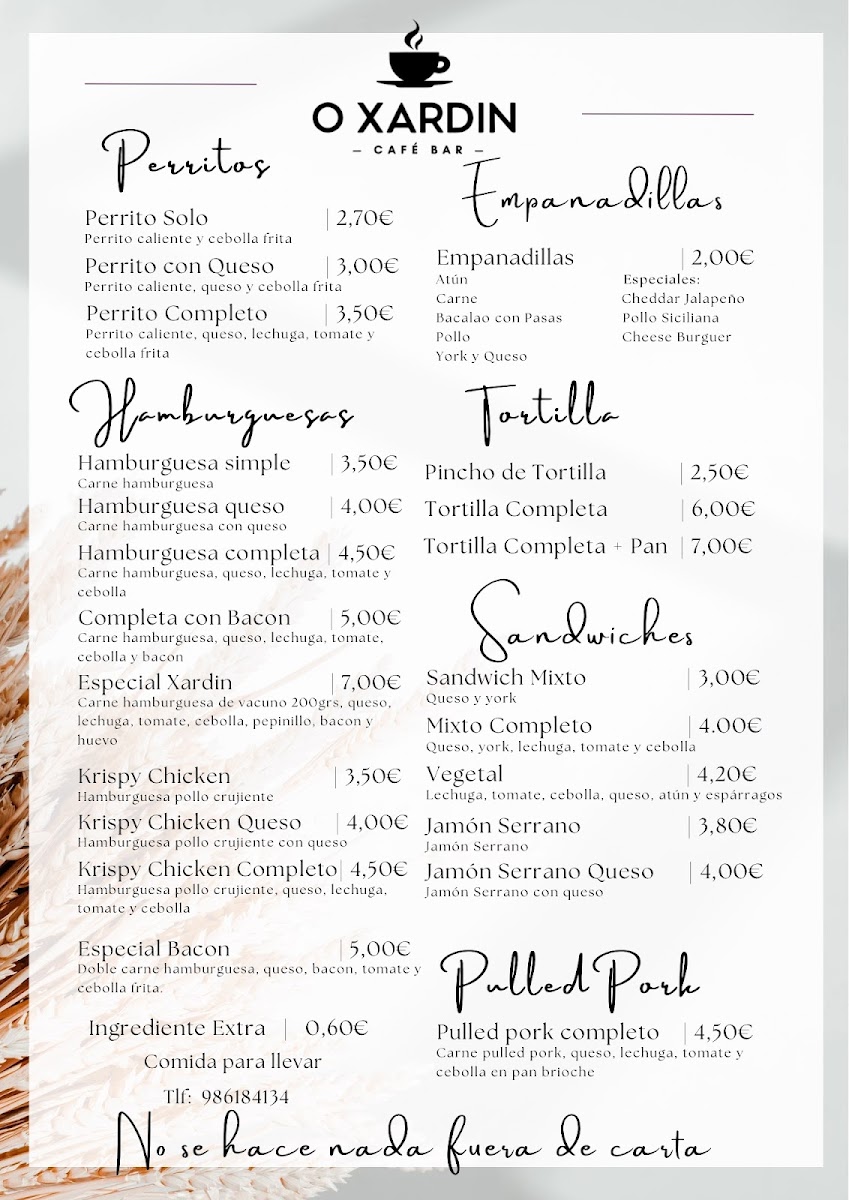 O XARDIN
– CAFÉ BAR –
Perritos
Perrito Solo | 2,70€
Perrito caliente y cebolla frita
Perrito con Queso | 3,00€
Perrito caliente, queso y cebolla frita
Perrito Completo | 3,50€
Perrito caliente, queso, lechuga, tomate y
cebolla frita
Hamburguesas
Hamburguesa simple | 3,50€
Carne hamburguesa
Hamburguesa queso | 4,00€
Carne hamburguesa con queso
Hamburguesa completa | 4,50€
Carne hamburguesa, queso, lechuga, tomate y
cebolla
Completa con Bacon | 5,00€
Carne hamburguesa, queso, lechuga, tomate,
cebolla y bacon
Especial Xardin | 7,00€
Carne hamburguesa de vacuno 200grs, queso,
lechuga, tomate, cebolla, pepinillo, bacon y
huevo
Krispy Chicken | 3,50€
Hamburguesa pollo crujiente
Krispy Chicken Queso | 4,00€
Hamburguesa pollo crujiente con queso
Krispy Chicken Completo | 4,50€
Hamburguesa pollo crujiente, queso, lechuga,
tomate y cebolla
Especial Bacon | 5,00€
Doble carne hamburguesa, queso, bacon, tomate y
cebolla frita.
Ingrediente Extra | 0,60€
Comida para llevar
Tlf: 986184134
Empanadillas
Empanadillas | 2,00€
Atún
Carne
Bacalao con Pasas
Pollo
York y Queso
Especiales:
Cheddar Jalapeño
Pollo Siciliana
Cheese Burguer
Tortilla
Pincho de Tortilla | 2,50€
Tortilla Completa | 6,00€
Tortilla Completa + Pan | 7,00€
Sandwiches
Sandwich Mixto | 3,00€
Queso y york
Mixto Completo | 4.00€
Queso, york, lechuga, tomate y cebolla
Vegetal | 4,20€
Lechuga, tomate, cebolla, queso, atún y espárragos
Jamón Serrano | 3,80€
Jamón Serrano
Jamón Serrano Queso | 4,00€
Jamón Serrano con queso
Pulled Pork
Pulled pork completo | 4,50€
Carne pulled pork, queso, lechuga, tomate y
cebolla en pan brioche
No se hace nada fuera de carta